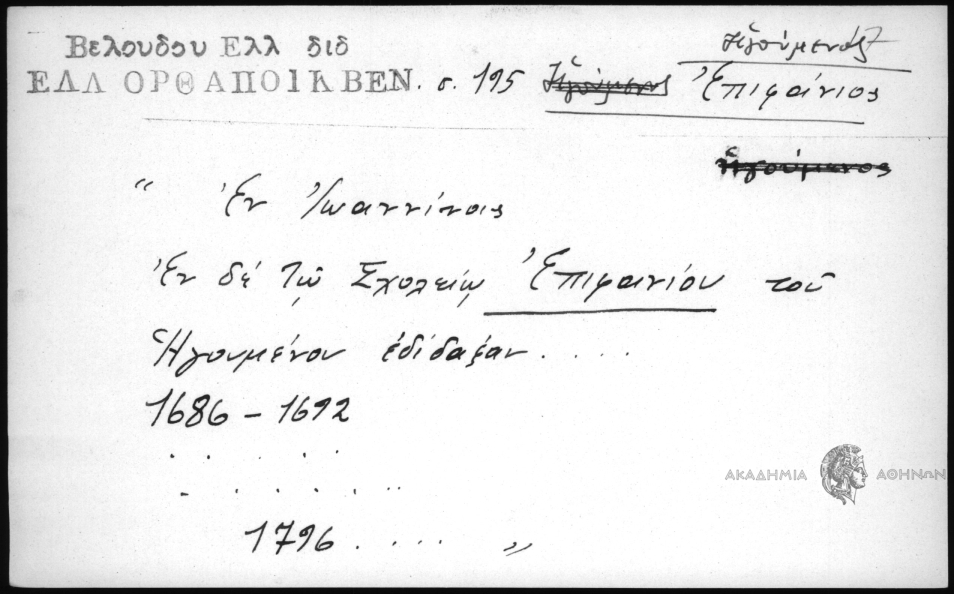 Βελουδου Ελλ διδ
ΕΛΛ ΟΡΘ ΑΠΟΙΚ ΒΕΝ. σ. 195 Ἡγούμενος Ἐπιφάνιος
Ἡγούμενος
Ἡγούμενος
" Ἐν Ἰωαννίνοις
Ἐν δέ τῷ Σχολείῳ Ἐπιφανίου τοῦ
Ἡγουμένου ἐδίδαξαν . . . .
1686 – 1692
. . . . . .
. . . . . . ..
1796 . . . . . "
ΑΚΑΔΗΜΙΑ ΑΘΗΝΩΝ